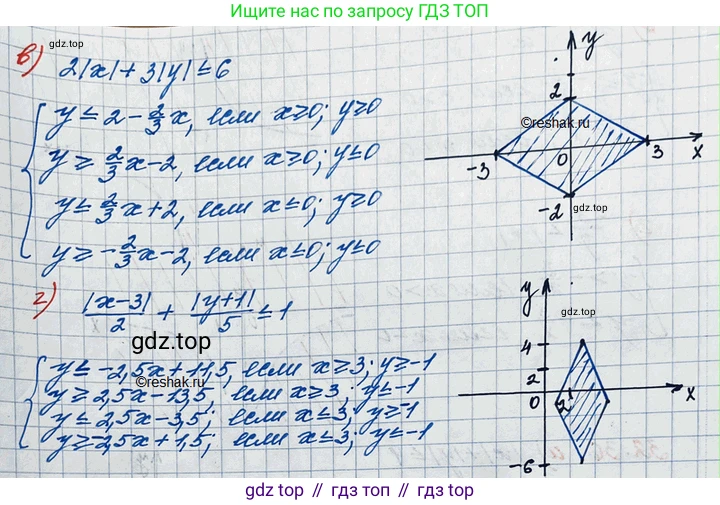 Ищите нас по запросу ГДЗ ТОП
gdz.top
в) 2|x| + 3|y| ≤ 6
y ≤ 2 - 2/3 x, если x ≥ 0; y ≥ 0
y ≥ 2/3 x - 2, если x ≥ 0; y ≤ 0
y ≤ 2/3 x + 2, если x ≤ 0; y ≥ 0
y ≥ -2/3 x - 2, если x ≤ 0; y ≤ 0
y
2
©reshak.ru
-3
0
3
x
-2
gdz.top
г) |x-3|/2 + |y+1|/5 ≤ 1
gdz.top
©reshak.ru
y ≤ -2,5x + 11,5, если x ≥ 3; y ≥ -1
y ≥ 2,5x - 13,5; если x ≥ 3; y ≤ -1
y ≤ 2,5x - 3,5; если x ≤ 3; y ≥ -1
y ≥ -2,5x + 1,5; если x ≤ 3; y ≤ -1
y
gdz.top
4
2
0
2
x
-6
gdz top // гдз топ // gdz.top